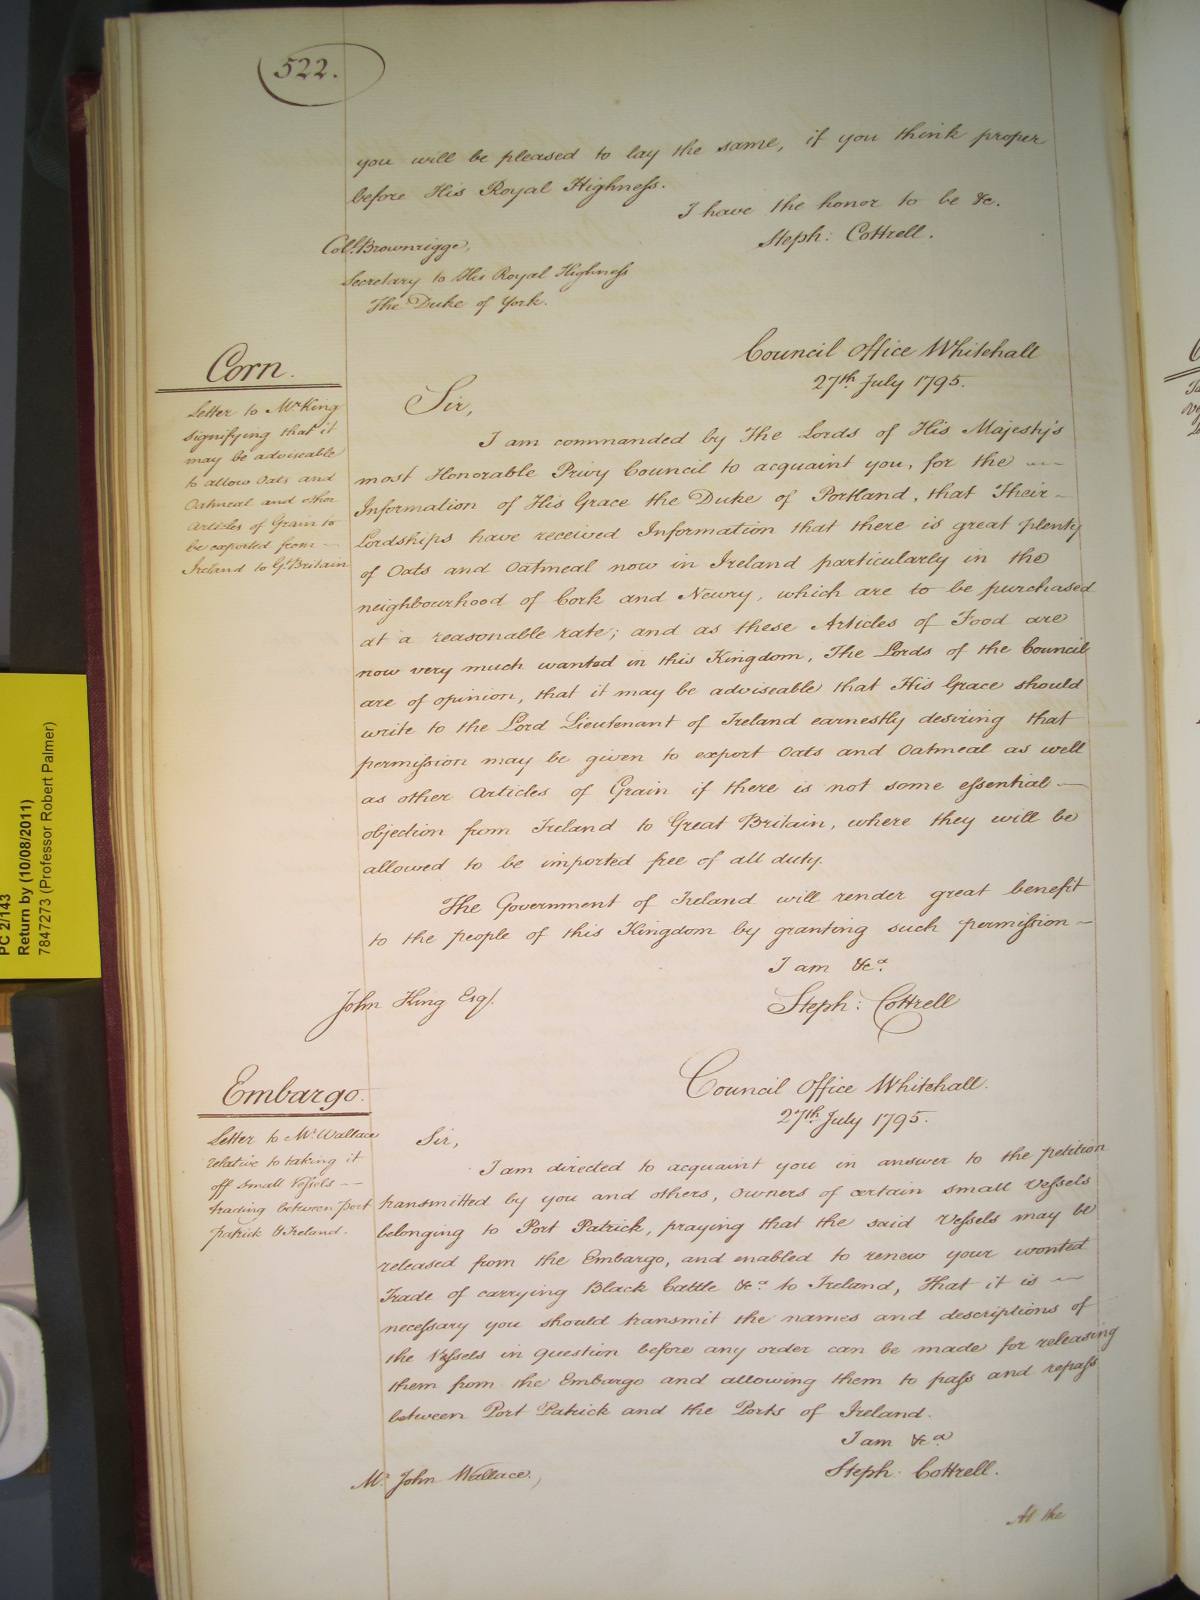 522.
you will be pleased to lay the same, if you think proper
before His Royal Highness.
I have the honor to be &c.
Steph: Cottrell.
Coll. Brownrigge,
Secretary to His Royal Highness
The Duke of York.
Corn.
Letter to Mr. King
signifying that it
may be adviseable
to allow Oats and
Oatmeal and other
Articles of Grain to
be exported from —
Ireland to Gt. Britain
Council Office Whitehall
27th. July 1795.
Sir,
I am commanded by The Lords of His Majesty's
most Honorable Privy Council to acquaint you, for the —
Information of His Grace the Duke of Portland, that Their —
Lordships have received Information that there is great plenty
of Oats and Oatmeal now in Ireland particularly in the
neighbourhood of Cork and Newry, which are to be purchased
at a reasonable rate; and as these Articles of Food are
now very much wanted in this Kingdom, The Lords of the Council
are of opinion, that it may be adviseable that His Grace should
write to the Lord Lieutenant of Ireland earnestly desiring that
permission may be given to export Oats and Oatmeal as well
as other Articles of Grain if there is not some essential —
objection from Ireland to Great Britain, where they will be
allowed to be imported free of all duty.
The Government of Ireland will render great benefit
to the people of this Kingdom by granting such permission —
I am &ca.
Steph: Cottrell
John King Esqr.
Embargo.
Letter to Mr. Wallace
relative to taking it
off small Vessels —
trading between Port
patrick & Ireland.
Council Office Whitehall.
27th. July 1795.
Sir,
I am directed to acquaint you in answer to the petition
transmitted by you and others, Owners of certain small Vessels
belonging to Port Patrick, praying that the said Vessels may be
released from the Embargo, and enabled to renew your wonted
Trade of carrying Black Cattle &ca. to Ireland, That it is —
necessary you should transmit the names and descriptions of
the Vessels in question before any order can be made for releasing
them from the Embargo and allowing them to pass and repass
between Port Patrick and the Ports of Ireland.
I am &ca
Steph: Cottrell.
Mr. John Wallace.,
At the
PC 2/143
Return by (10/08/2011)
7847273 (Professor Robert Palmer)